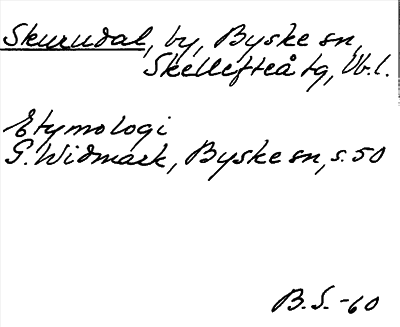 Skurudal, by, Byske sn,
Skellefteå tg, Vb.l.
Etymologi
G. Widmark, Byske sn, s. 50
B.S.-60